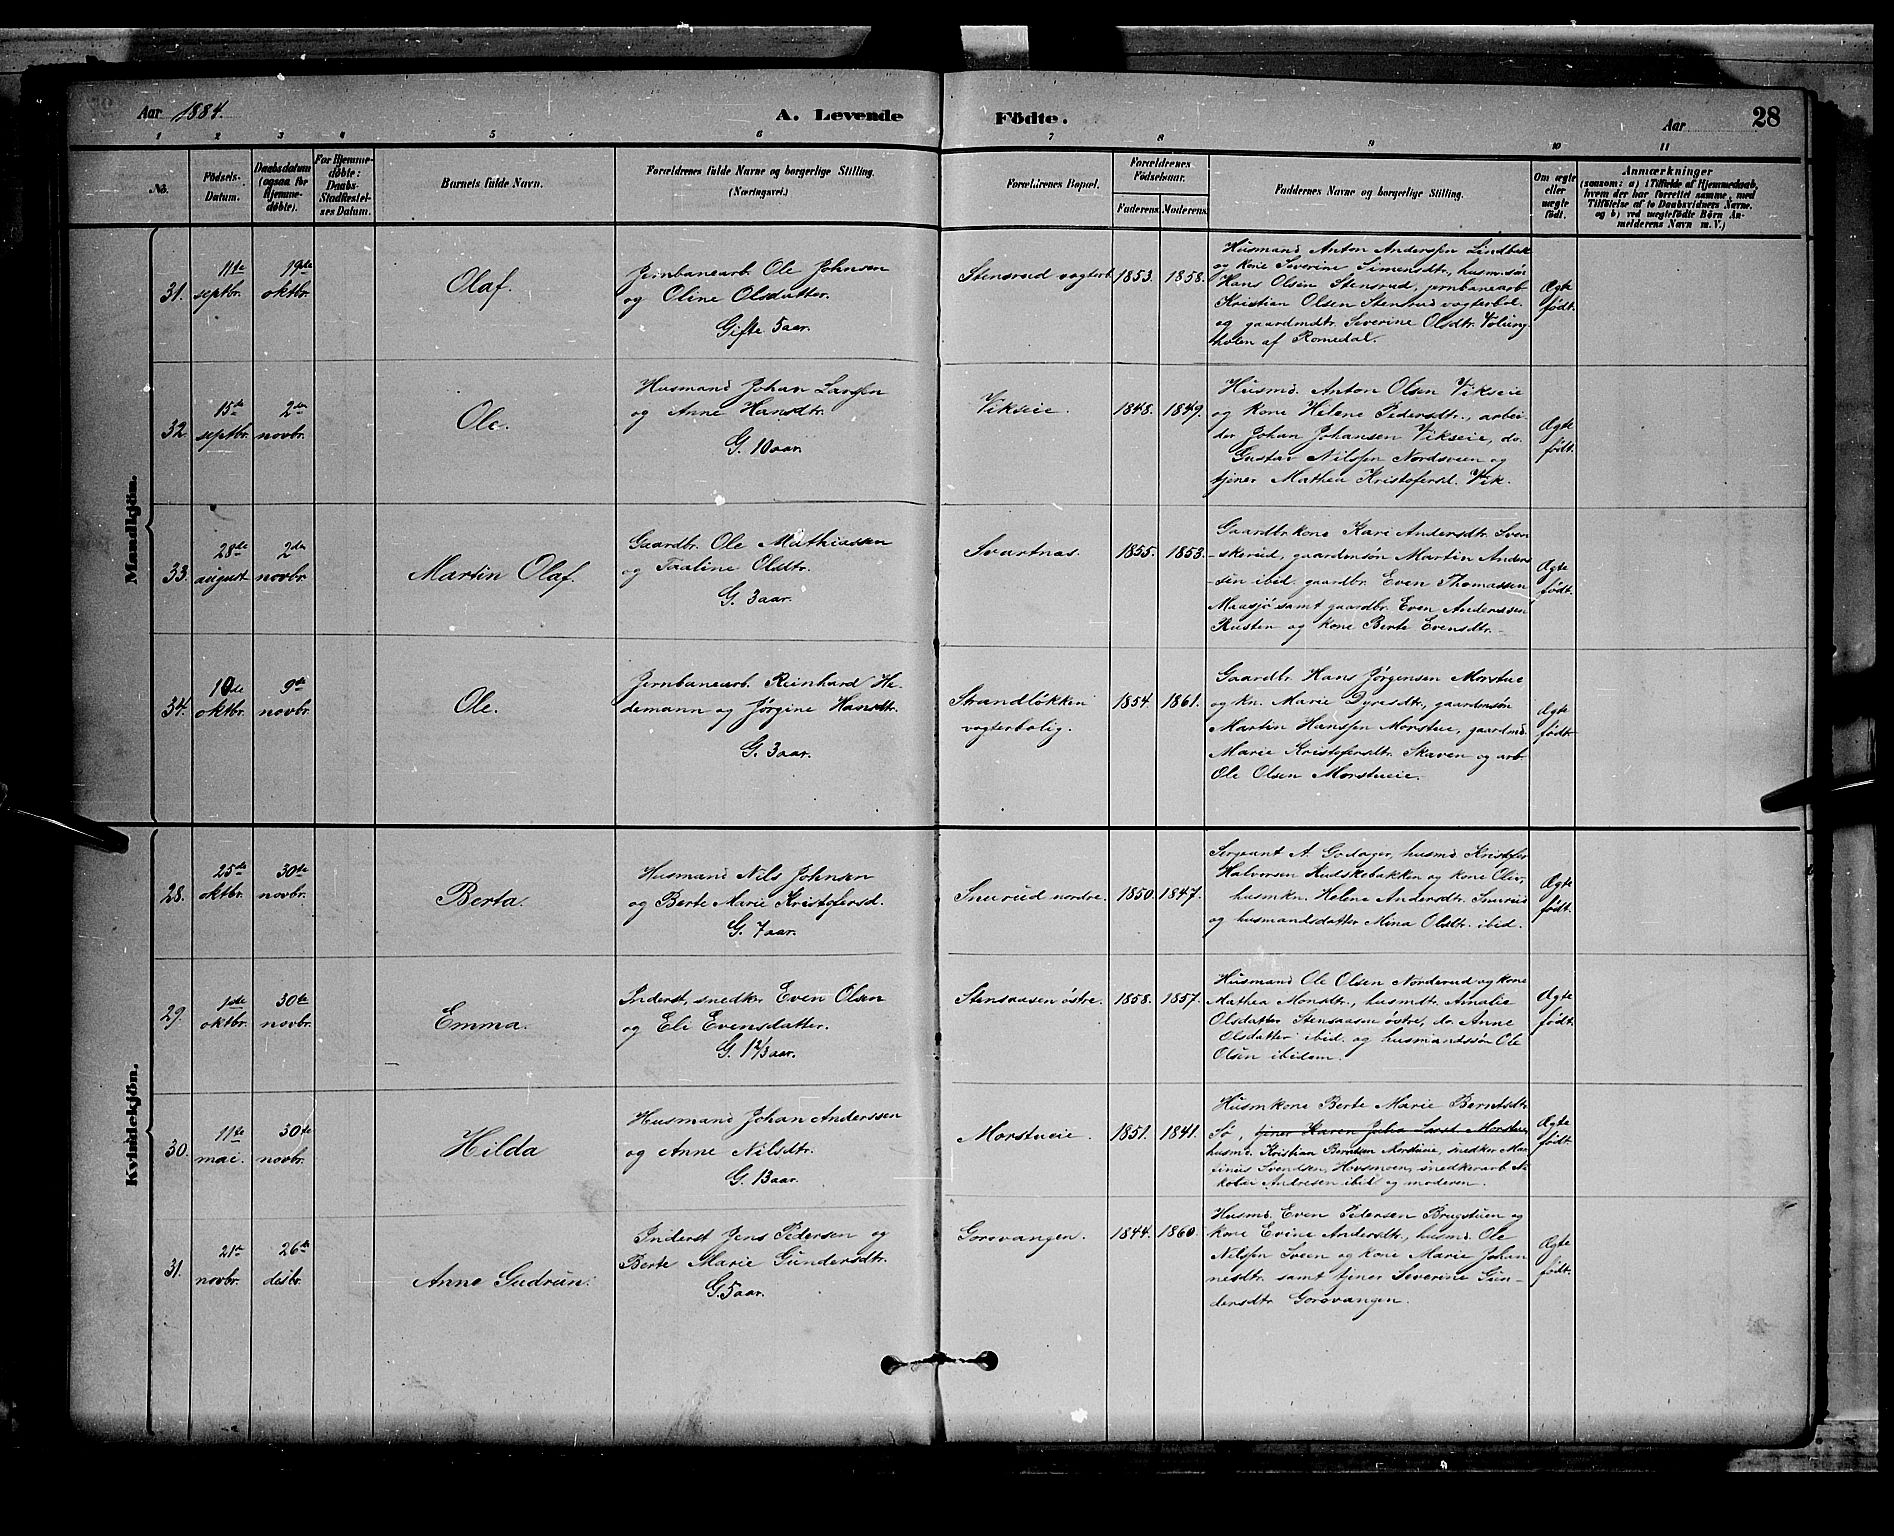 Aar 1884. A. Levende Födte. Aar 28
1 2 3 4 5 6 7 8 9 10 11
No.
Födsels-
Datum.
Daabsdatum
(ogsaa for
Hjemme-
döbte).
For Hjemme-
döbte:
Daabs-
Stadfæstel-
ses Datum.
Barnets fulde Navn.
Forældrenes fulde Navne og borgerlige Stilling.
(Næringsvei.)
Forældrenes Bopæl.
Forældrenes
Födselsaar.
Faderens. Moderens.
Faddernes Navne og borgerlige Stilling.
Om ægte
eller
uægte
födt.
Anmærkninger
(saasom: a) i Tilfælde af Hjemmedaab,
hvem der har forrettet samme, med
Tilföielse af to Daabsvidners Navne,
og b) ved uægtefödte Börn An-
melderens Navn m. V.)
Mandkjön.
31.
11te
septbr.
19de
oktbr.
Olaf.
Jernbanearb. Ole Johnsen
og Oline Olsdatter.
Gifte 5 aar.
Stensrud vogterb.
1853. 1858.
Husmand Anton Anderssen Lindbæk
og kone Severine Simensdtr., husm.søn
Hans Olsen Stensrud, jernbanearb.
Kristian Olsen Stensrud vogterbol.
og gaardmdtr. Severine Olsdtr.
af Romedal.
Ægte
født.
32.
15de
septbr.
2den
novbr.
Ole.
Husmand Johan Larssen
og Anne Hansdtr.
G. 10 aar.
Vikseie.
1848. 1849.
Husmd. Anton Olsen Vikseie
og kone Helene Pedersdtr., arbei-
der Johan Johansen Vikseie, do.
Gustav Nilssen Nordsveen og
tjener Mathea Kristofersd. Vik.
Ægte
født.
33.
28de
august
2den
novbr.
Martin Olaf.
Gaardbr. Ole Mathiassen
og Pauline Olsdtr.
G. 3 aar.
Svartnæs.
1855. 1853.
Gaardbr.kone Kari Andersdtr. Sven-
skerud, gaardmsøn Martin Anders-
sen ibid. gaardbr. Even Thomassen
Maasjø samt gaardbr. Even Anderssen
Rusten og kone Berte Evensdtr.
Ægte
født.
34.
10de
oktbr.
9de
novbr.
Ole.
Jernbanearb. Reinhard He-
demann og Jørgine Hansdtr.
G. 3 aar.
Strandløkken
vogterbolig.
1854. 1861.
Gaardbr. Hans Jørgensen Morstue
og kn. Marie Dyresdtr., gaardmsøn
Martin Hanssen Morstue, gaardmd.
Marie Kristofersdtr. Skaven og arb.
Ole Olsen Morstueie.
Ægte
født.
Kvindekjön.
28.
25de
oktbr.
30te
novbr.
Berta.
Husmand Nils Johnsen
og Berte Marie Kristofersd.
G. 7 aar.
Snurud nordre.
1850. 1847.
Sergeant A. Godager, husmd. Kristofer
Halvorsen Kudskebakken og kone Oliv,
husmkn. Helene Andersdtr. Snurud
og husmandsdatter Mina Olsdtr. ibid.
Ægte
født.
29.
1ste
oktbr.
30te
novbr.
Emma.
Inderst, snedker Even Olsen
og Eli Evensdatter.
G. 1 2/3 aar.
Stensaasen østre.
1858. 1857.
Husmand Ole Olsen Norderud og kone
Mathea Monsdtr., husmdt. Amalie
Olsdatter Stensaasen østre, do. Anne
Olsdatter ibid. og husmandssøn Ole
Olsen ibidem.
Ægte
født.
30.
11te
mai.
30te
novbr.
Hilda
Husmand Johan Anderssen
og Anne Nilsdtr.
G. 13 aar.
Morstueie.
1851. 1841.
Husmkone Berte Marie Berntsdtr.
Sø, tjener Karen Larsd. Morstue,
husmd. Kristian Berntsen Morstueie, snedker Mar-
tinus Svendsen, Hovsmoen, snedkerarb. Ni-
kolai Andresen ibid. og moderen.
Ægte
født.
31.
21de
novbr.
26te
desbr.
Anne Gudrun.
Inderst Jens Pedersen og
Berte Marie Gundersdtr.
G. 5 aar.
Gorovangen.
1844. 1860.
Husmd. Even Pedersen Brugstuen og
kone Evine Andersdtr., husmd. Ole
Nilssen Sveen og kone Marie Johan-
nesdtr. samt tjener Severine Gun-
dersdtr. Gorovangen.
Ægte
født.